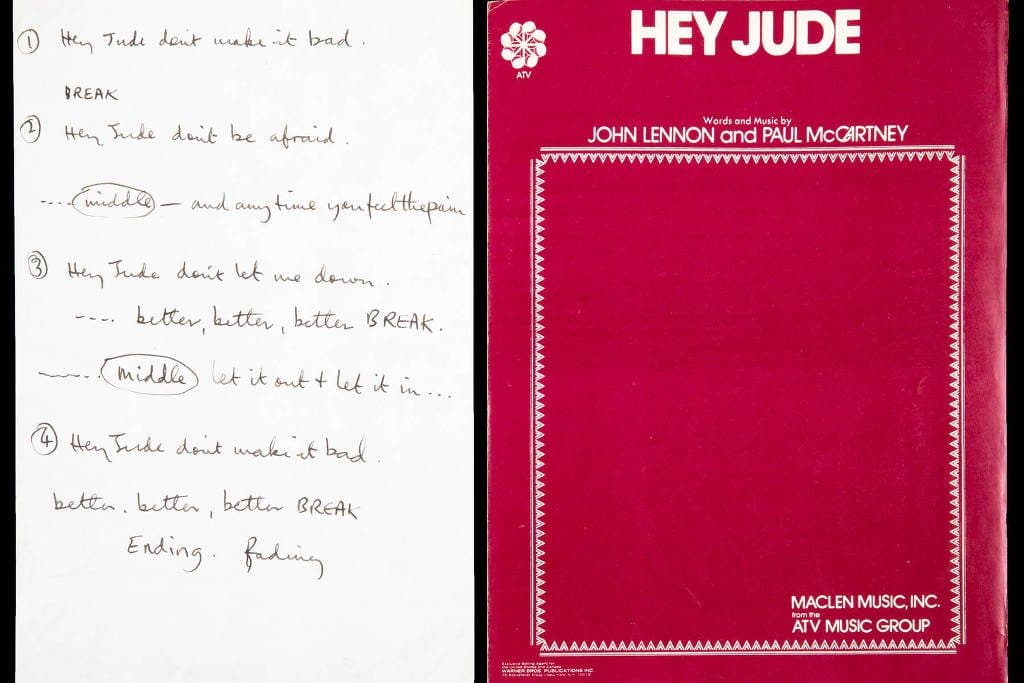 ① Hey Jude don't make it bad.
BREAK
② Hey Jude don't be afraid.
---- middle — and any time you feel the pain
③ Hey Jude don't let me down.
---- better, better, better BREAK.
---- middle let it out + let it in ...
④ Hey Jude don't make it bad.
better. better, better BREAK
Ending. fading
ATV
HEY JUDE
Words and Music by
JOHN LENNON and PAUL McCARTNEY
MACLEN MUSIC, INC.
from the
ATV MUSIC GROUP
Exclusive Selling Agent for
the United States and Canada
WARNER BROS. PUBLICATIONS INC.
75 Rockefeller Plaza • New York, N.Y. 10019